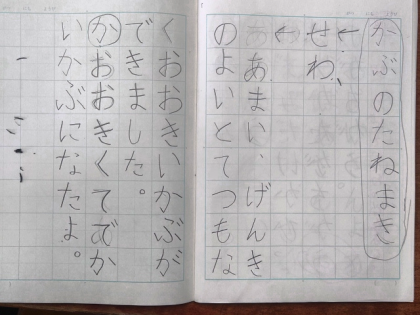 かぶのたねまき
せわ、
あまい、げんき
のよいとてつもな
くおおきいかぶが
できました。
かおおきくてでか
いかぶになたよ。